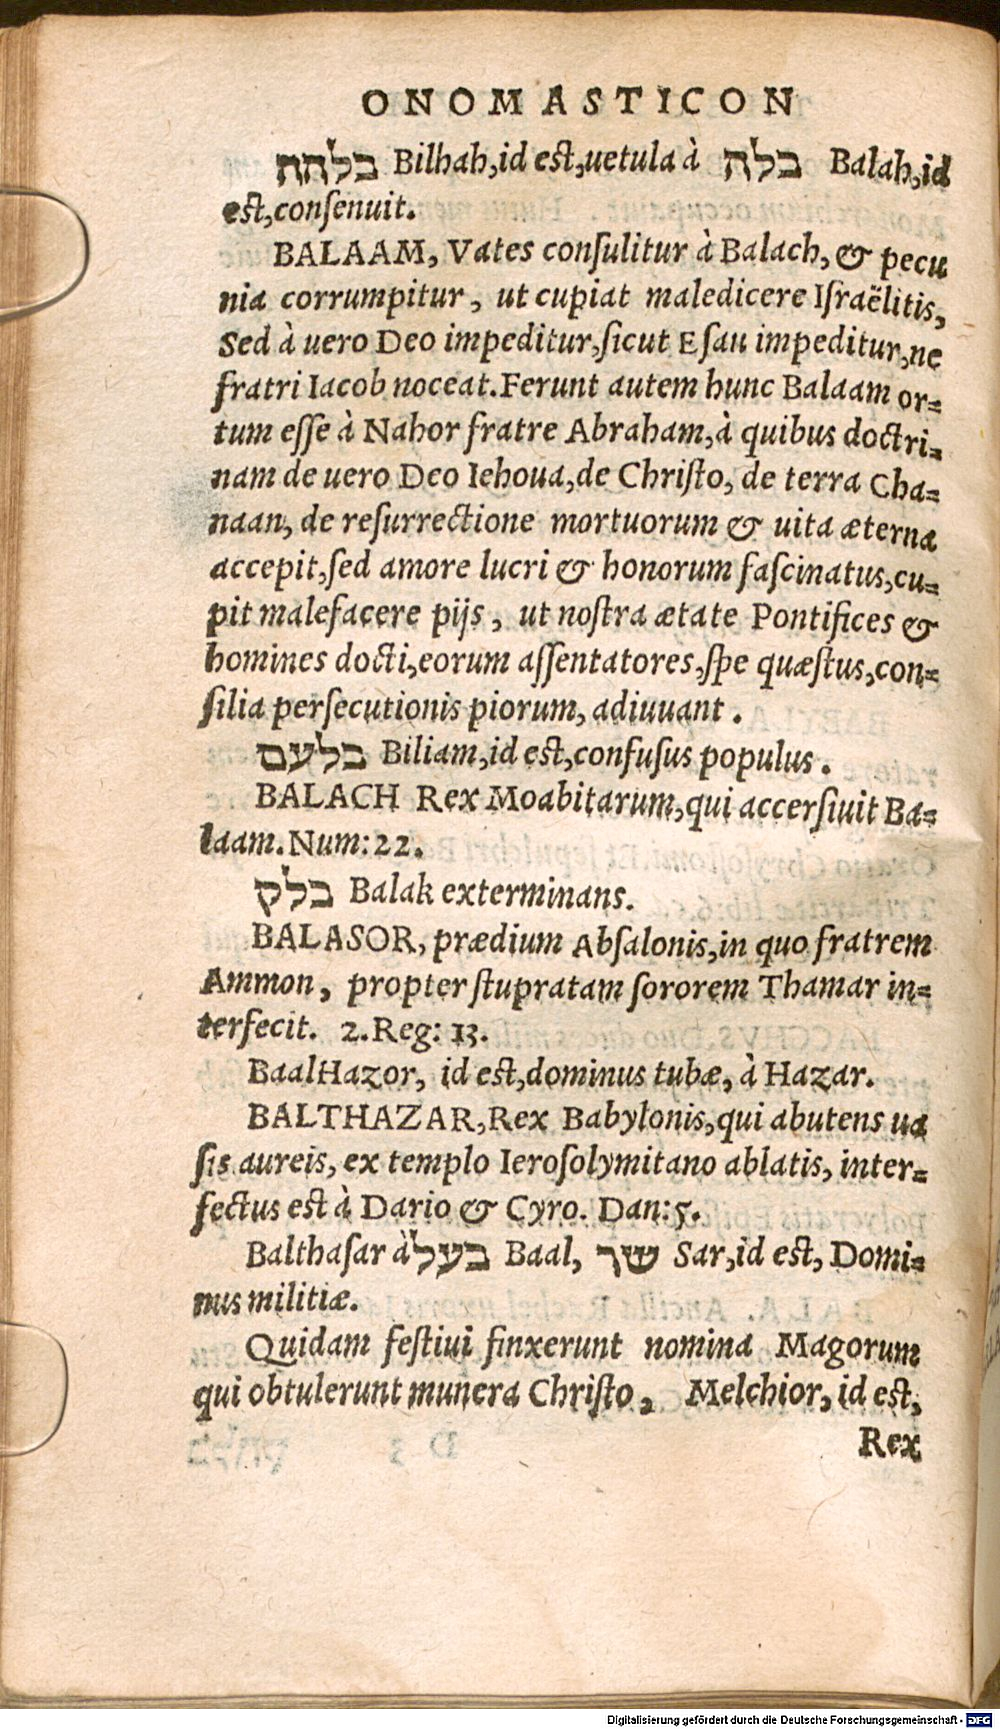 ONOMASTICON
בלהה Bilhah, id est, uetula à בלה Balah, id
est, consenuit.
BALAAM, Vates consulitur à Balach, & pecu
nia corrumpitur, ut cupiat maledicere Israëlitis,
Sed à uero Deo impeditur, sicut Esau impeditur, ne
fratri Iacob noceat. Ferunt autem hunc Balaam or=
tum esse à Nahor fratre Abraham, à quibus doctri=
nam de uero Deo Iehoua, de Christo, de terra Cha=
naan, de resurrectione mortuorum & uita æterna
accepit, sed amore lucri & honorum fascinatus, cu=
pit malefacere pijs, ut nostra ætate Pontifices &
homines docti, eorum assentatores, spe quæstus, con=
silia persecutionis piorum, adiuuant.
בלעם Biliam, id est, confusus populus.
BALACH Rex Moabitarum, qui accersiuit Ba=
laam. Num: 22.
בלק Balak exterminans.
BALASOR, prædium Absalonis, in quo fratrem
Ammon, propter stupratam sororem Thamar in=
terfecit. 2. Reg: 13.
BaalHazor, id est, dominus tubæ, à Hazar.
BALTHAZAR, Rex Babylonis, qui abutens ua
sis aureis, ex templo Ierosolymitano ablatis, inter=
fectus est à Dario & Cyro. Dan: 5.
Balthasar à בעל Baal, שר Sar, id est, Domi=
nus militiæ.
Quidam festiui finxerunt nomina Magorum
qui obtulerunt munera Christo, Melchior, id est,
Rex
Digitalisierung gefördert durch die Deutsche Forschungsgemeinschaft - DFG